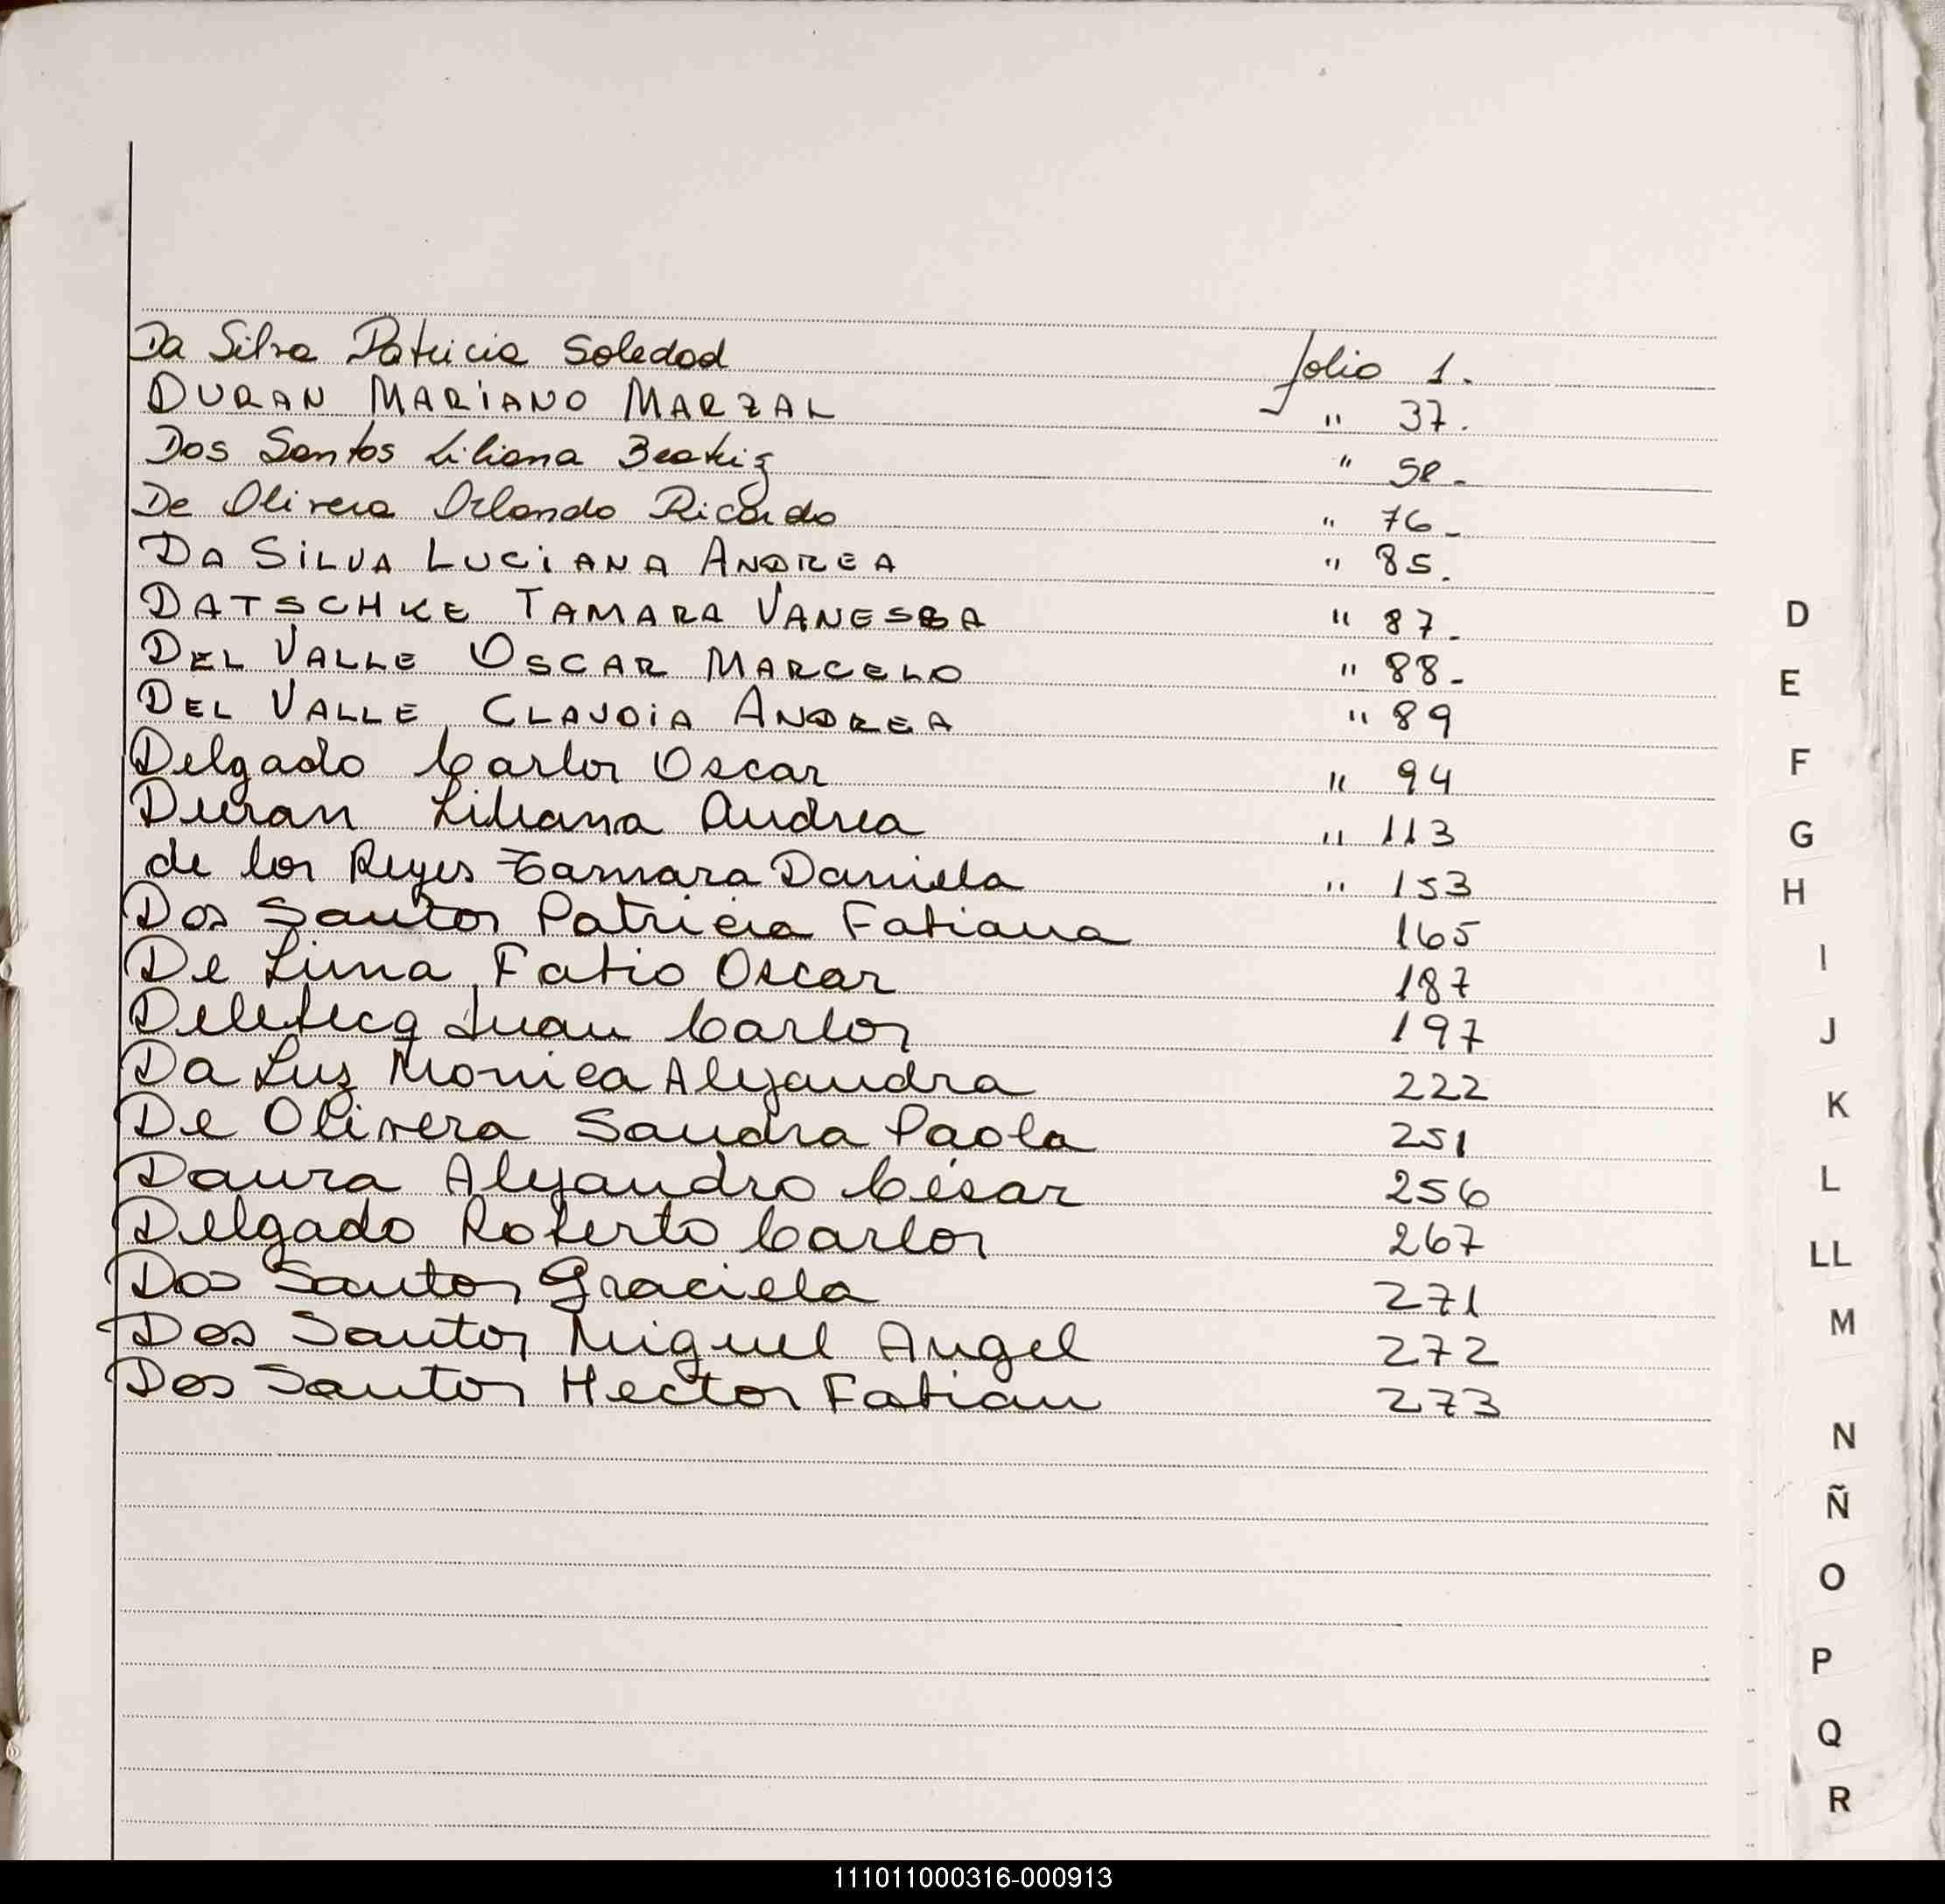 Da Silva Patricia Soledad folio 1.
DURAN MARIANO MARZAL " 37.
Dos Santos Liliana Beatriz " 58.
De Olivera Orlando Ricardo " 76.
DA SILVA LUCIANA ANDREA " 85.
DATSCHKE TAMARA VANESSA " 87.
DEL VALLE OSCAR MARCELO " 88.
DEL VALLE, CLAUDIA ANDREA " 89
Delgado Carlos Oscar " 94
Duran Liliana Andrea " 113
de los Reyes Tamara Daniela " 153
Dos Santos Patricia Fabiana 165
De Lima, Fabio Oscar 187
Juan Carlos 197
Da Luz Monica Alejandra 222
De Olivera Sandra Paola 251
Daura Alejandro César 256
Delgado Roberto Carlos 267
Dos Santos Graciela 271
Dos Santos Miguel Angel 272
Dos Santos Hector Fabian 273
D
E
F
G
H
I
J
K
L
LL
M
N
Ñ
O
P
Q
R
111011000316-000913